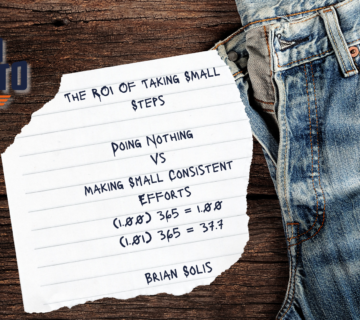 TO
THE ROI OF TAKING SMALL
STEPS
DOING NOTHING
VS
MAKING SMALL CONSISTENT
EFFORTS
(1.00) 365 = 1.00
(1.01) 365 = 37.7
BRIAN SOLIS